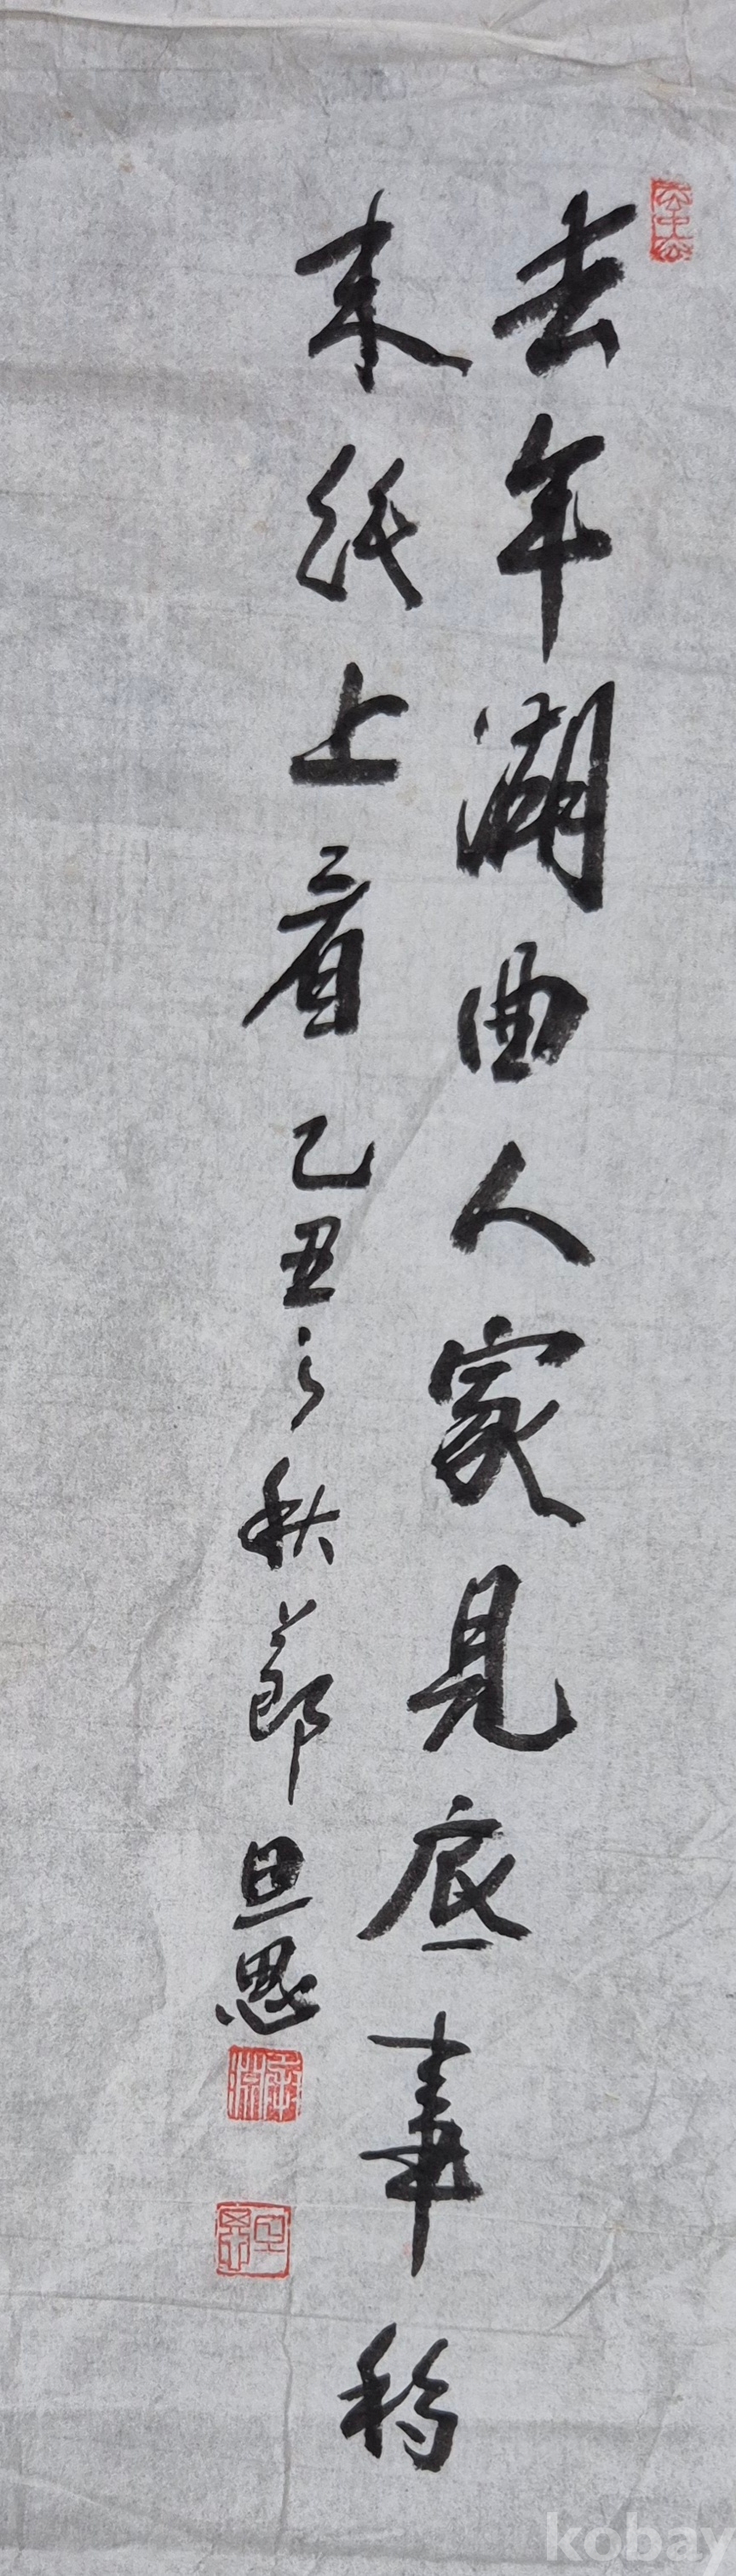 去年湖曲人家見底事移
来紙上看 乙丑之秋節 旦愚
kobay